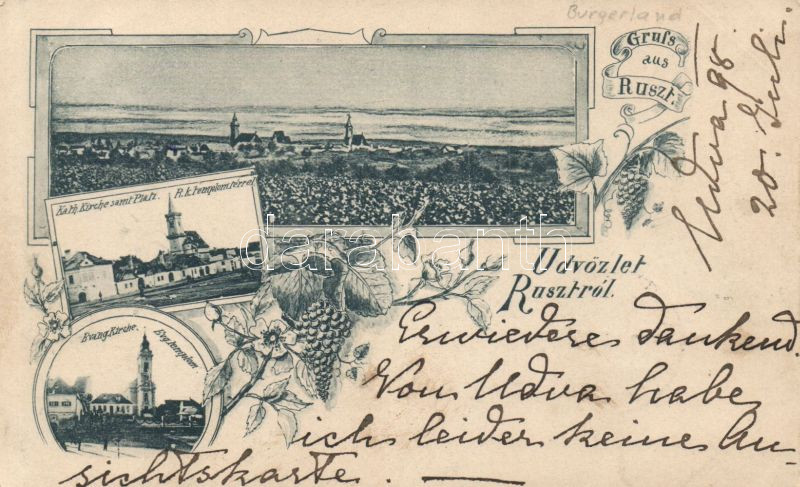 Burgerland
Gruß
aus
Ruszt.
Udva 98
20. Juli.
Kath. Kirche samt Platz. R. k. templom térrel
darabanth
Üdvözlet
Rusztról.
Evang. Kirche. Evg. templom
Erwiedere dankend.
Vom Udva habe
ich leider keine An-
sichtskarte.